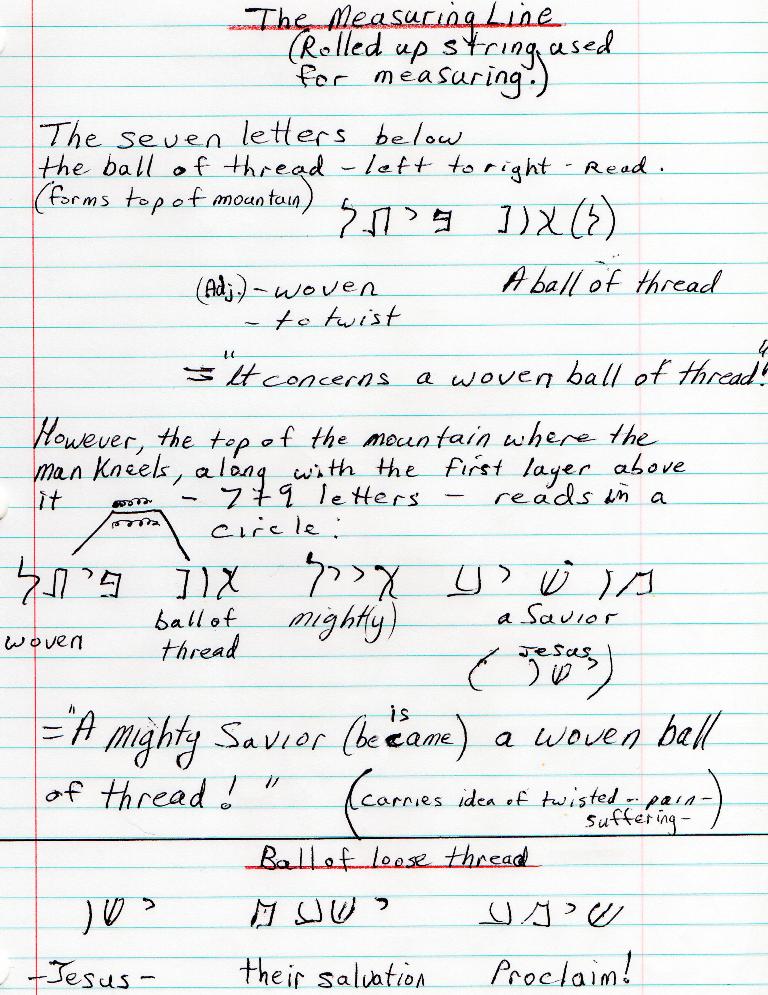 The Measuring Line
(Rolled up string used
for measuring.)
The seven letters below
the ball of thread - left to right - Read.
(forms top of mountain)
פיתל
(Adj.) - woven
A ball of thread
- to twist
= "It concerns a woven ball of thread."
However, the top of the mountain where the
man kneels, along with the first layer above
it - 7 + 9 letters - reads in a
circle:
פיתל אייל מושיע
woven ball of thread mightly) a Savior
(Jesus)
ישו
= "A mighty Savior (became) is a woven ball
of thread!" (carries idea of twisted - pain -
suffering -)
Ball of loose thread
ישו ישעם שימע
- Jesus - their salvation Proclaim!